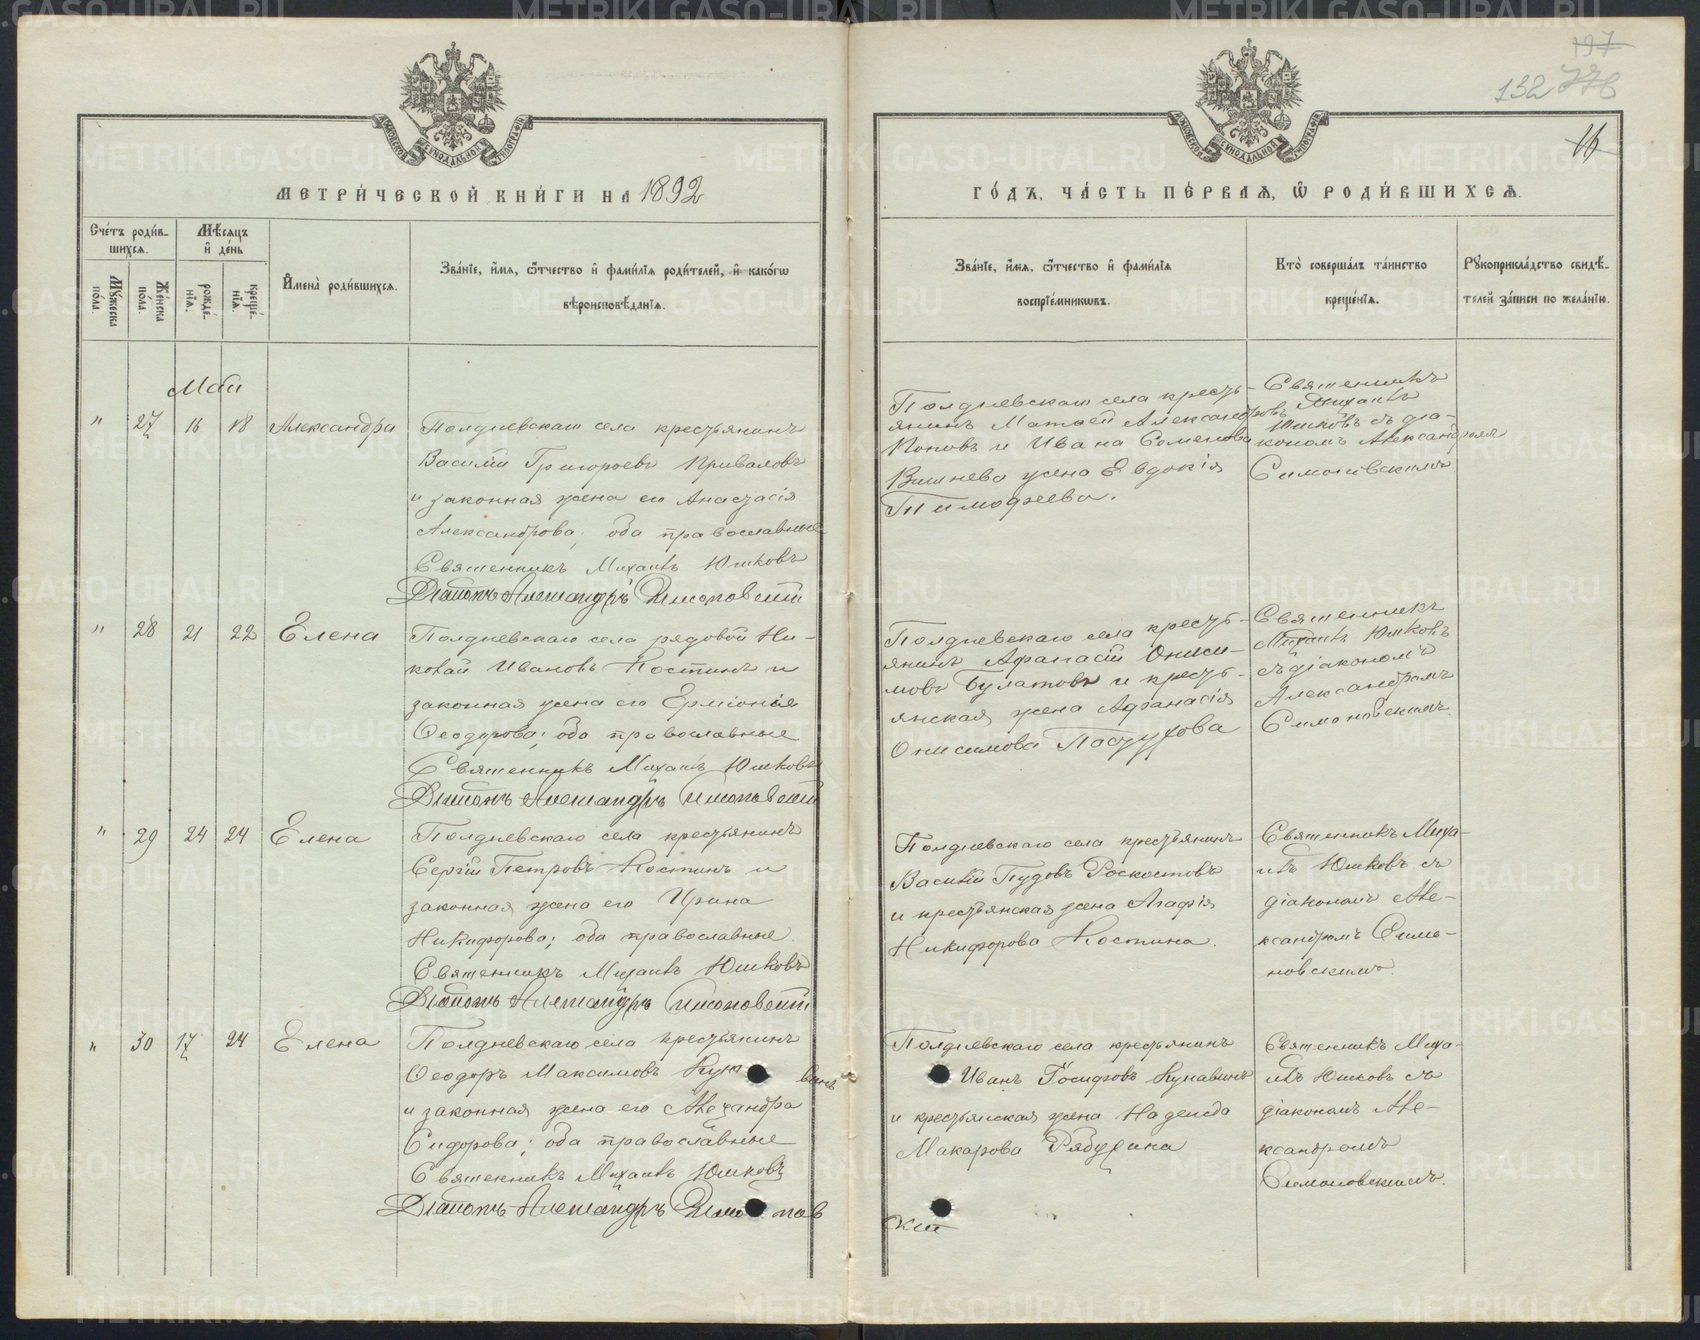 197
132 778
16
МЕТРИ́ЧЕСКОЙ КНИ́ГИ НА 1892
ГО́ДЪ, ЧА́СТЬ ПЕ́РВАЯ, Ѽ РОДИ́ВШИХСЯ.
Сче́тъ роди́в-
шихся.
Му́жеска по́ла.
Же́нска по́ла.
Мѣ́сяцъ
и҆ де́нь
рожде́-
нїѧ.
креще́-
нїѧ.
И҆мена̀ роди́вшихся.
Зва́нїе, и҆́мя, ѻ҆́тчество и҆ фами́лїя роди́телей, и҆ како́гѡ
вѣроисповѣ́данїя.
Зва́нїе, и҆́мя, ѻ҆́тчество и҆ фами́лїя
воспрїе́мникѡвъ.
Кто̀ соверша́лъ та́инство
креще́нїя.
Рꙋкоприкла́дство свидѣ́-
телей за́писи по жела́нїю.
Май
" 27 16 18 Александра
Полдневскаго села крестьянинъ
Василій Григорьевъ Приваловъ
и законная жена его Анастасія
Александрова; оба православные
Священникъ Михаилъ Юшковъ
Діаконъ Александръ Симоновскій
Полдневскаго села кресть-
янинъ Матвей Александровъ
Поповъ и Ивана Семенова
Вишнева жена Евдокія
Тимофеева.
Священникъ
Михаилъ
Юшковъ съ діа-
кономъ Александромъ
Симоновскимъ
" 28 21 22 Елена
Полдневскаго села рядовой Ни-
колай Ивановъ Костинъ и
законная жена его Ермионія
Ѳеодорова; оба православные
Священникъ Михаилъ Юшковъ
Діаконъ Александръ Симоновскій
Полдневскаго села кресть-
янинъ Афанасій Ониси-
мовъ Булатовъ и кресть-
янская жена Афанасія
Онисимова Пастухова
Священникъ
Михаилъ Юшковъ
съ діакономъ
Александромъ
Симоновскимъ
" 29 24 24 Елена
Полдневскаго села крестьянинъ
Сергій Петровъ Костинъ и
законная жена его Ирина
Никифорова; оба православные.
Священникъ Михаилъ Юшковъ
Діаконъ Александръ Симоновскій
Полдневскаго села крестьянинъ
Василій Пудовъ Роскостовъ
и крестьянская жена Агафія
Никифорова Костина.
Священникъ Миха-
илъ Юшковъ съ
діакономъ Але-
ксандромъ Симо-
новскимъ.
" 30 17 24 Елена
Полдневскаго села крестьянинъ
Ѳеодоръ Максимовъ Кунавинъ
и законная жена его Александра
Сидорова; оба православные
Священникъ Михаилъ Юшковъ
Діаконъ Александръ Симонов
скій
Полдневскаго села крестьянинъ
Иванъ Іосифовъ Кунавинъ
и крестьянская жена Надежда
Макарова Рябухина
Священникъ Миха-
илъ Юшковъ съ
діакономъ Але-
ксандромъ
Симоновскимъ.
METRIKI.GASO-URAL.RU